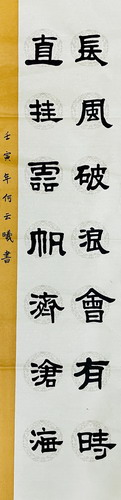 長風破浪會有時
直挂雲帆濟滄海
壬寅年何云曦書